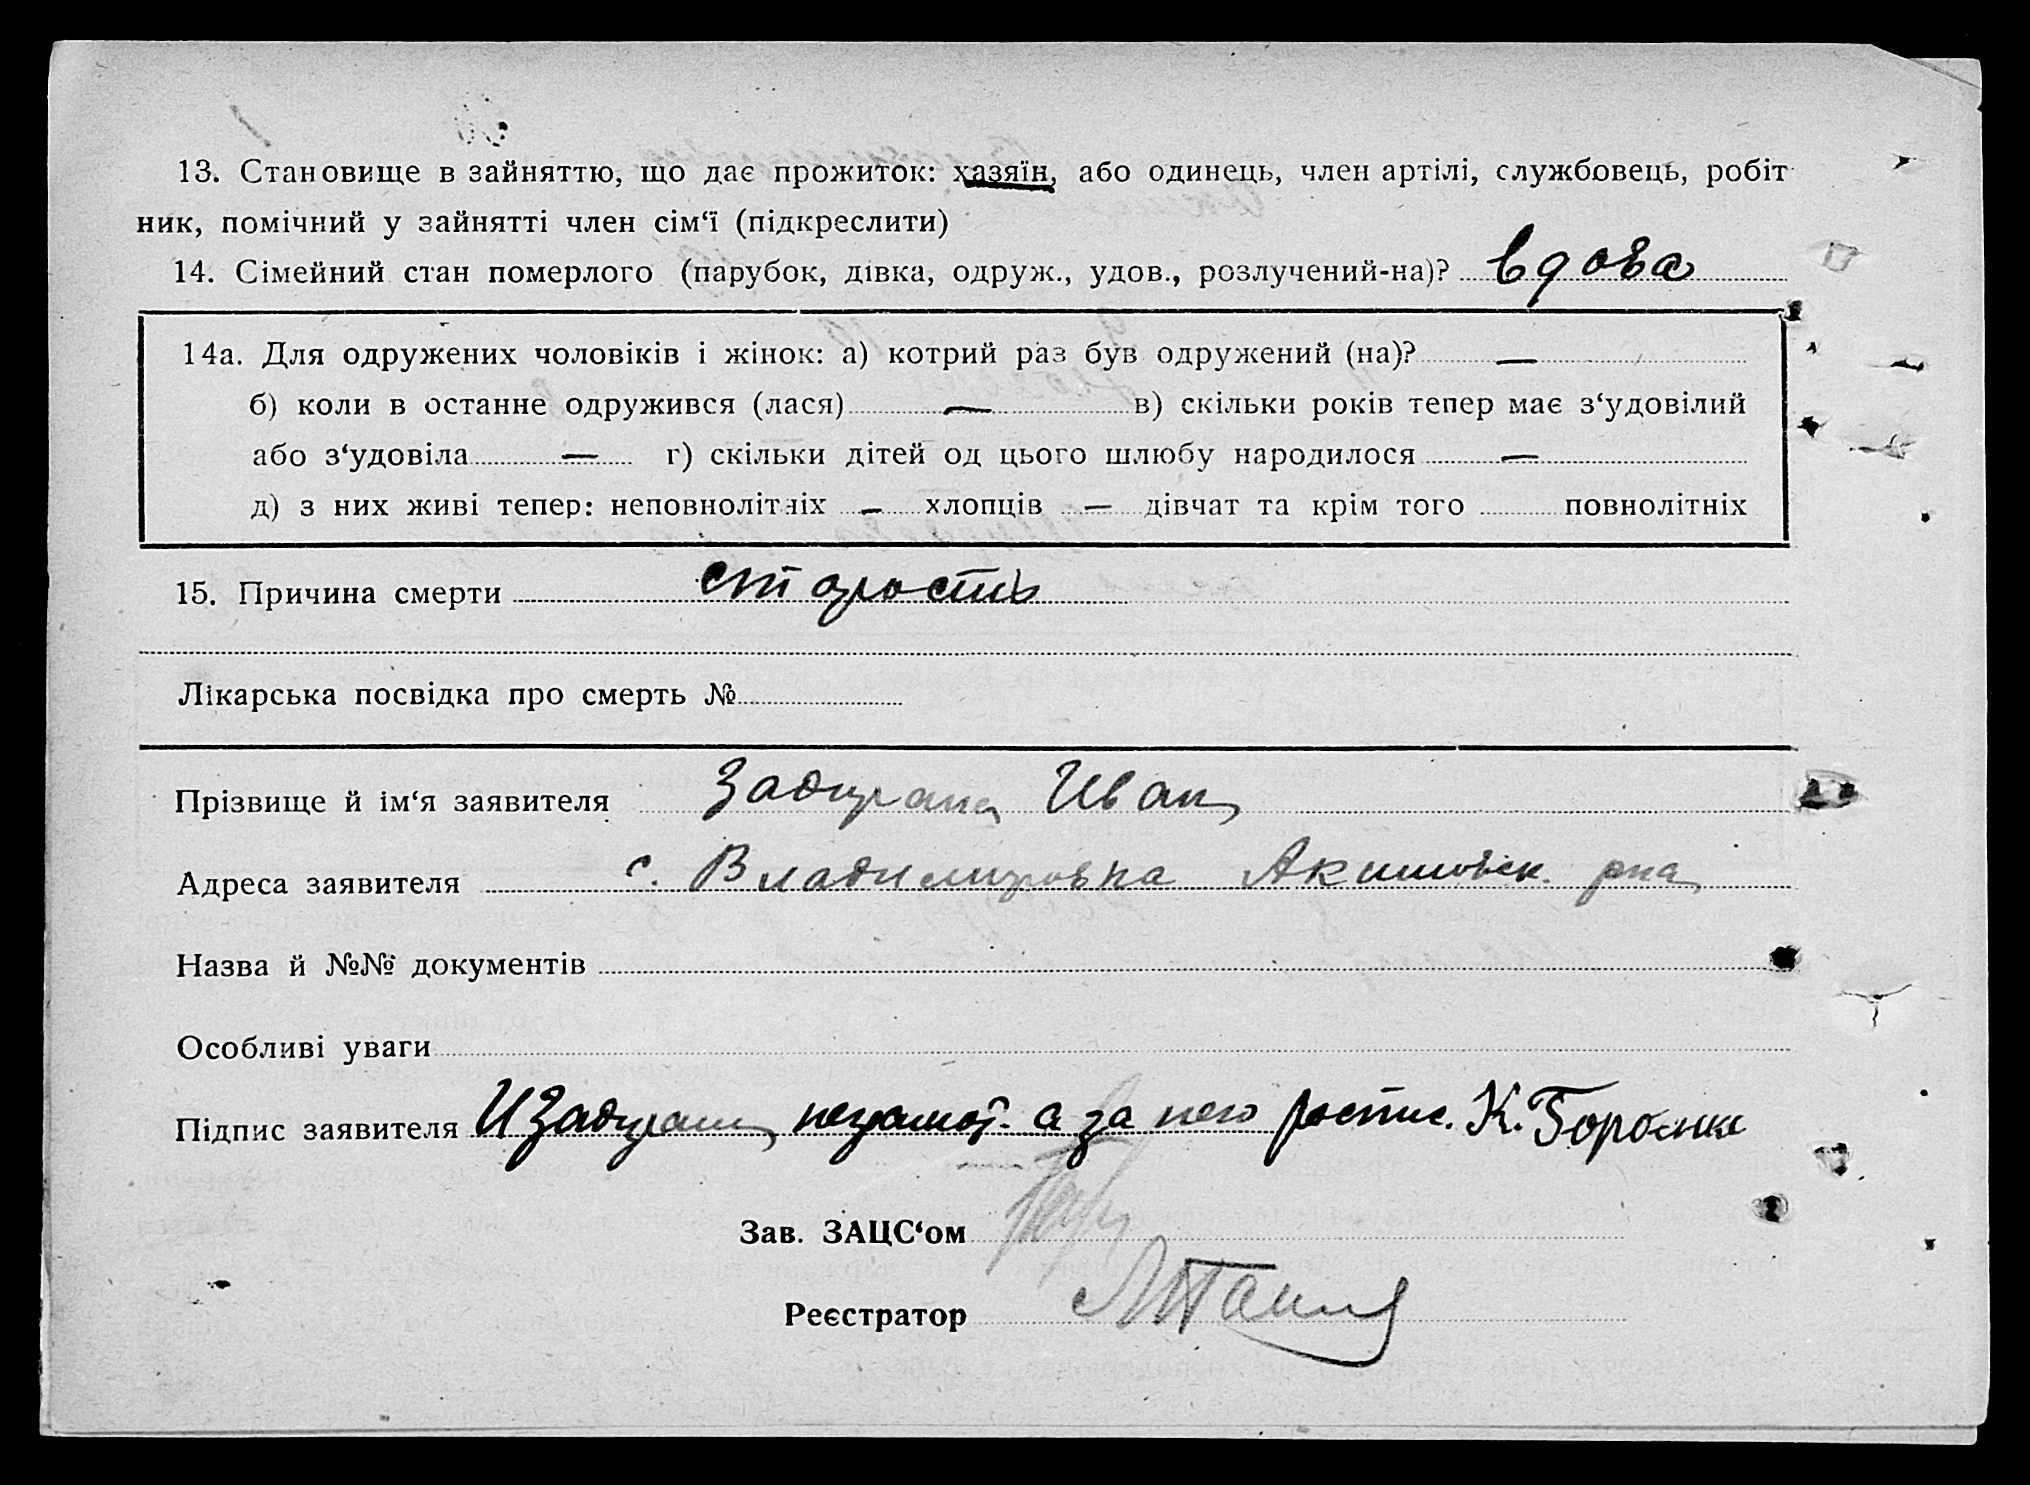 13. Становище в зайняттю, що дає прожиток: хазяїн, або одинець, член артілі, службовець, робіт
ник, помічний у зайнятті член сім‘ї (підкреслити)
14. Сімейний стан померлого (парубок, дівка, одруж., удов., розлучений-на)? вдова
14а. Для одружених чоловіків і жінок: а) котрий раз був одружений (на)? —
б) коли в останне одружився (лася) — в) скільки років тепер має з‘удовілий
або з‘удовіла — г) скільки дітей од цього шлюбу народилося —
д) з них живі тепер: неповнолітніх — хлопців — дівчат та крім того повнолітніх
15. Причина смерти старость
Лікарська посвідка про смерть №
Прізвище й ім‘я заявителя Задирака Иван
Адреса заявителя с. Владимировка Акимовск. рна
Назва й №№ документів
Особливі уваги
Підпис заявителя И неграмот. а за него роспис. К.
Зав. ЗАЦС‘ом
Реєстратор